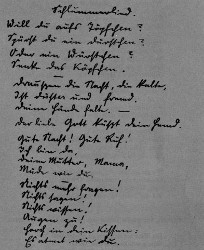 Schlummerlied.
Willst du aufs Töpfchen?
Spürst du ein Dürstchen?
Oder ein Würstchen?
Senke das Köpfchen.
Draußen die Nacht, die kalte,
Ist düster und fremd.
Deine Hände falte. —
Der liebe Gott küßt dein Hemd.
Gute Nacht! Gute Ruh!
Ich bin da,
Deine Mutter, Mama;
Müde wie du.
Nichts mehr fragen!
Nichts sagen!
Nichts wissen!
Augen zu!
Horch in dein Kissen:
Es atmet wie du.